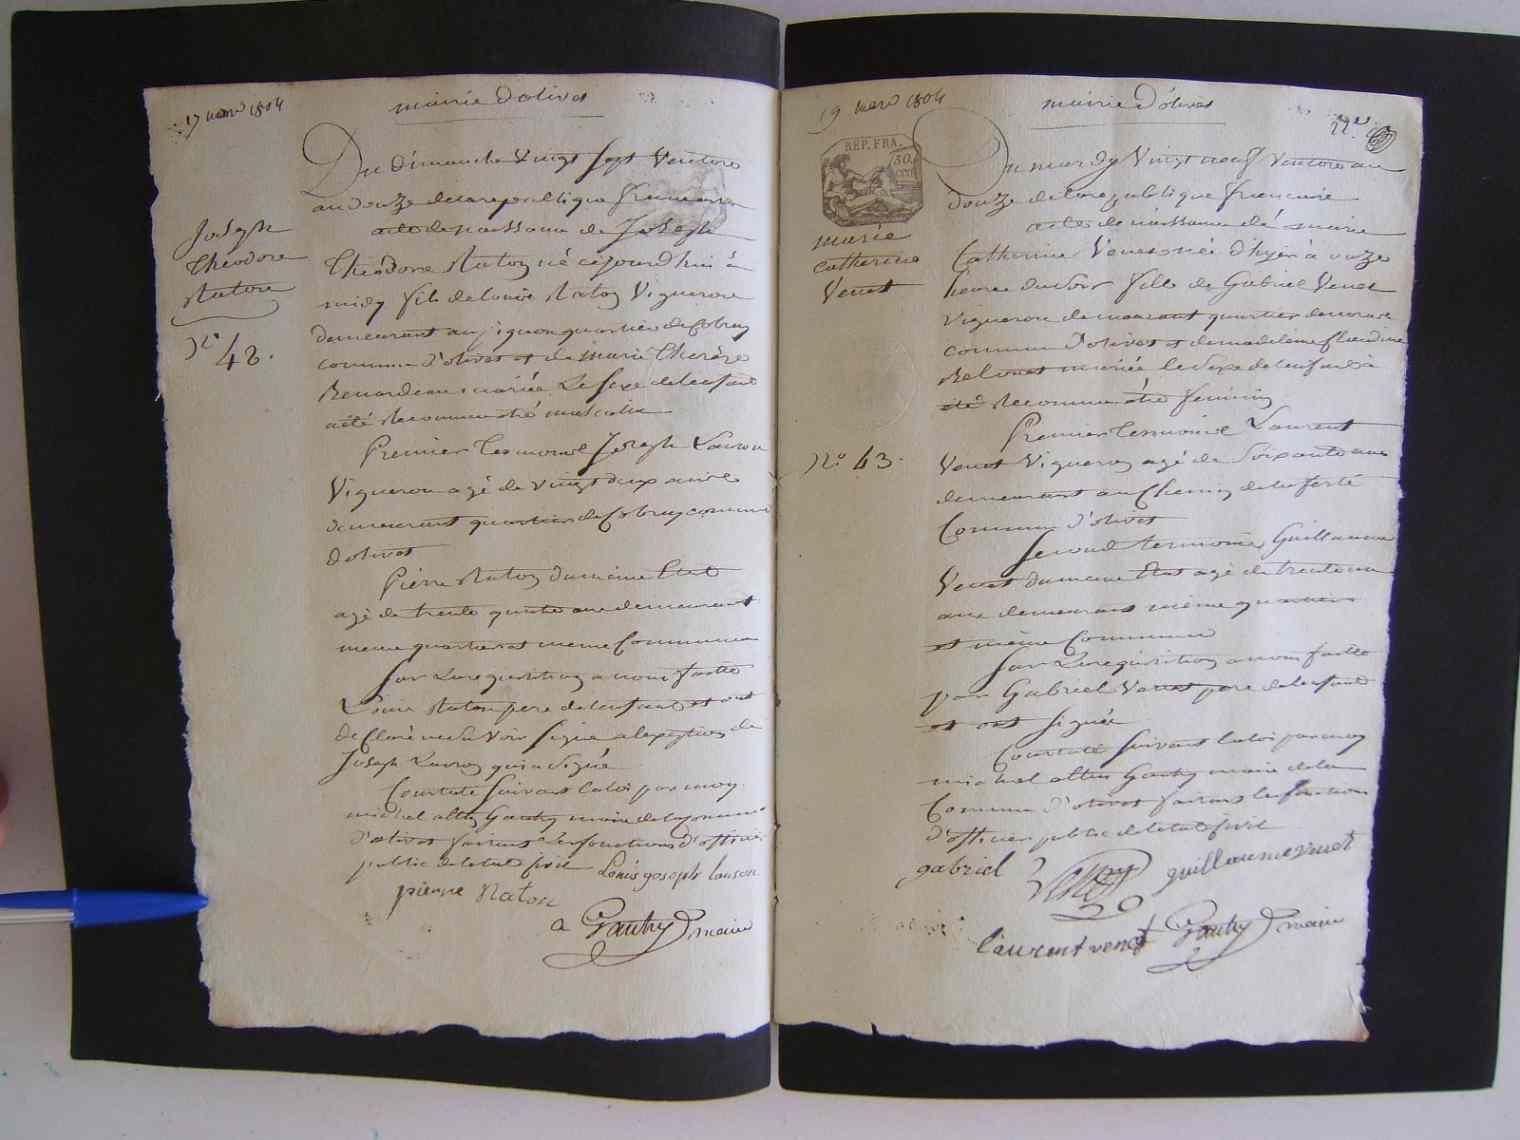 17 mars 1804
mairie d'olivet
Du Dimanche Vingt Sept Ventose
an douze de la republique francaise
acte de naissance de Joseph
Theodore Naton né cejourd'hui à
midy fils de Louis Naton Vigneron
demeurant au quartier de Cobray
commune d'olivet et de marie Therèze
Renardeau mariée Le Sexe de l'enfant
a été Reconnu être masculin
Premier Temoin Joseph Lauson
Vigneron agé de vingt deux ans
demeurant quartier de Cobray commune
d'olivet
Pierre Naton du même Etat
agé de trente quatre ans demeurant
meme quartier et meme Commune
Sur La requisition a nous faitte
Louis Naton pere de l'enfant et ont
declaré ne Savoir Signé a l'exeption de
Joseph Lauson qui a Signé
Constaté Suivant la loi par moy
michel altin Gautry maire de la commune
d'olivet faisant les fonctions d'officier
public de l'etat Civil Louis joseph lauson
pierre Naton
a Gautry maire
Joseph
Theodore
Natone
N° 42.
19 mars 1804
mairie d'olivet
22.e
REP. FRA.
50.
Du mardy Vingt neuf Ventose an
douze de la republique francaise
acte de naissance de marie
Catherine Venet née d'hyer à onze
heures du Soir fille de Gabriel Venet
Vigneron demeurant quartier
commune d'olivet et de madelaine
mariée le Sexe de l'enfant a
été Reconnu être feminin
Premier temoin Laurent
Venet Vigneron agé de Soixante ans
demeurant au Chemin de la ferté
Commune d'olivet
Second temoin Guillaume
Venet du meme Etat agé de trente un
ans demeurant même quartier
et même Commune
Sur La requisition a nous faitte
par Gabriel Venet pere de l'enfant
et ont Signé
Constaté Suivant la loi par moy
michel altin Gautry maire de la
Commune d'olivet faisant les fonctions
d'officier public de l'etat Civil
gabriel Venet guillaume venet
laurent venet Gautry maire
marie
catherine
Venet
N° 43.